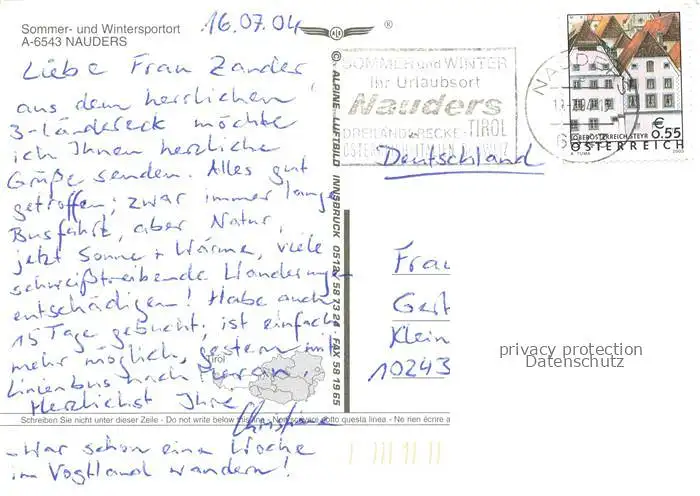 Sommer- und Wintersportort
A-6543 NAUDERS
16.07.04
®
Liebe Frau Zander,
aus dem herrlichen
3-Ländereck möchte
ich Ihnen herzliche
Grüße senden. Alles gut
getroffen; zwar immer lange
Busfahrt, aber Natur,
jetzt Sonne + Wärme, viele
schweißtreibende Wanderungen
entschädigen! Habe auch
15 Tage gebucht, ist einfach
mehr möglich, gestern mit
Linienbus nach Meran.
Herzlichst Ihre
Christiane
Schreiben Sie nicht unter dieser Zeile - Do not write below this line - Non scrivere sotto questa linea - Ne rien écrire
- War schon eine Woche
im Vogtland wandern!
© ALPINE LUFTBILD INNSBRUCK 0512/ 58 13 24 FAX 58 19 65
Tirol
SOMMER und WINTER
Ihr Urlaubsort
Nauders
DREILÄNDERECKE-TIROL
ÖSTERREICH-ITALIEN-SCHWEIZ
NAUDERS
€
0.55
OBERÖSTERREICH STEYR
A. TUMA 2003
ÖSTERREICH
Deutschland
Frau
Gert
Klein
10243
privacy protection
Datenschutz